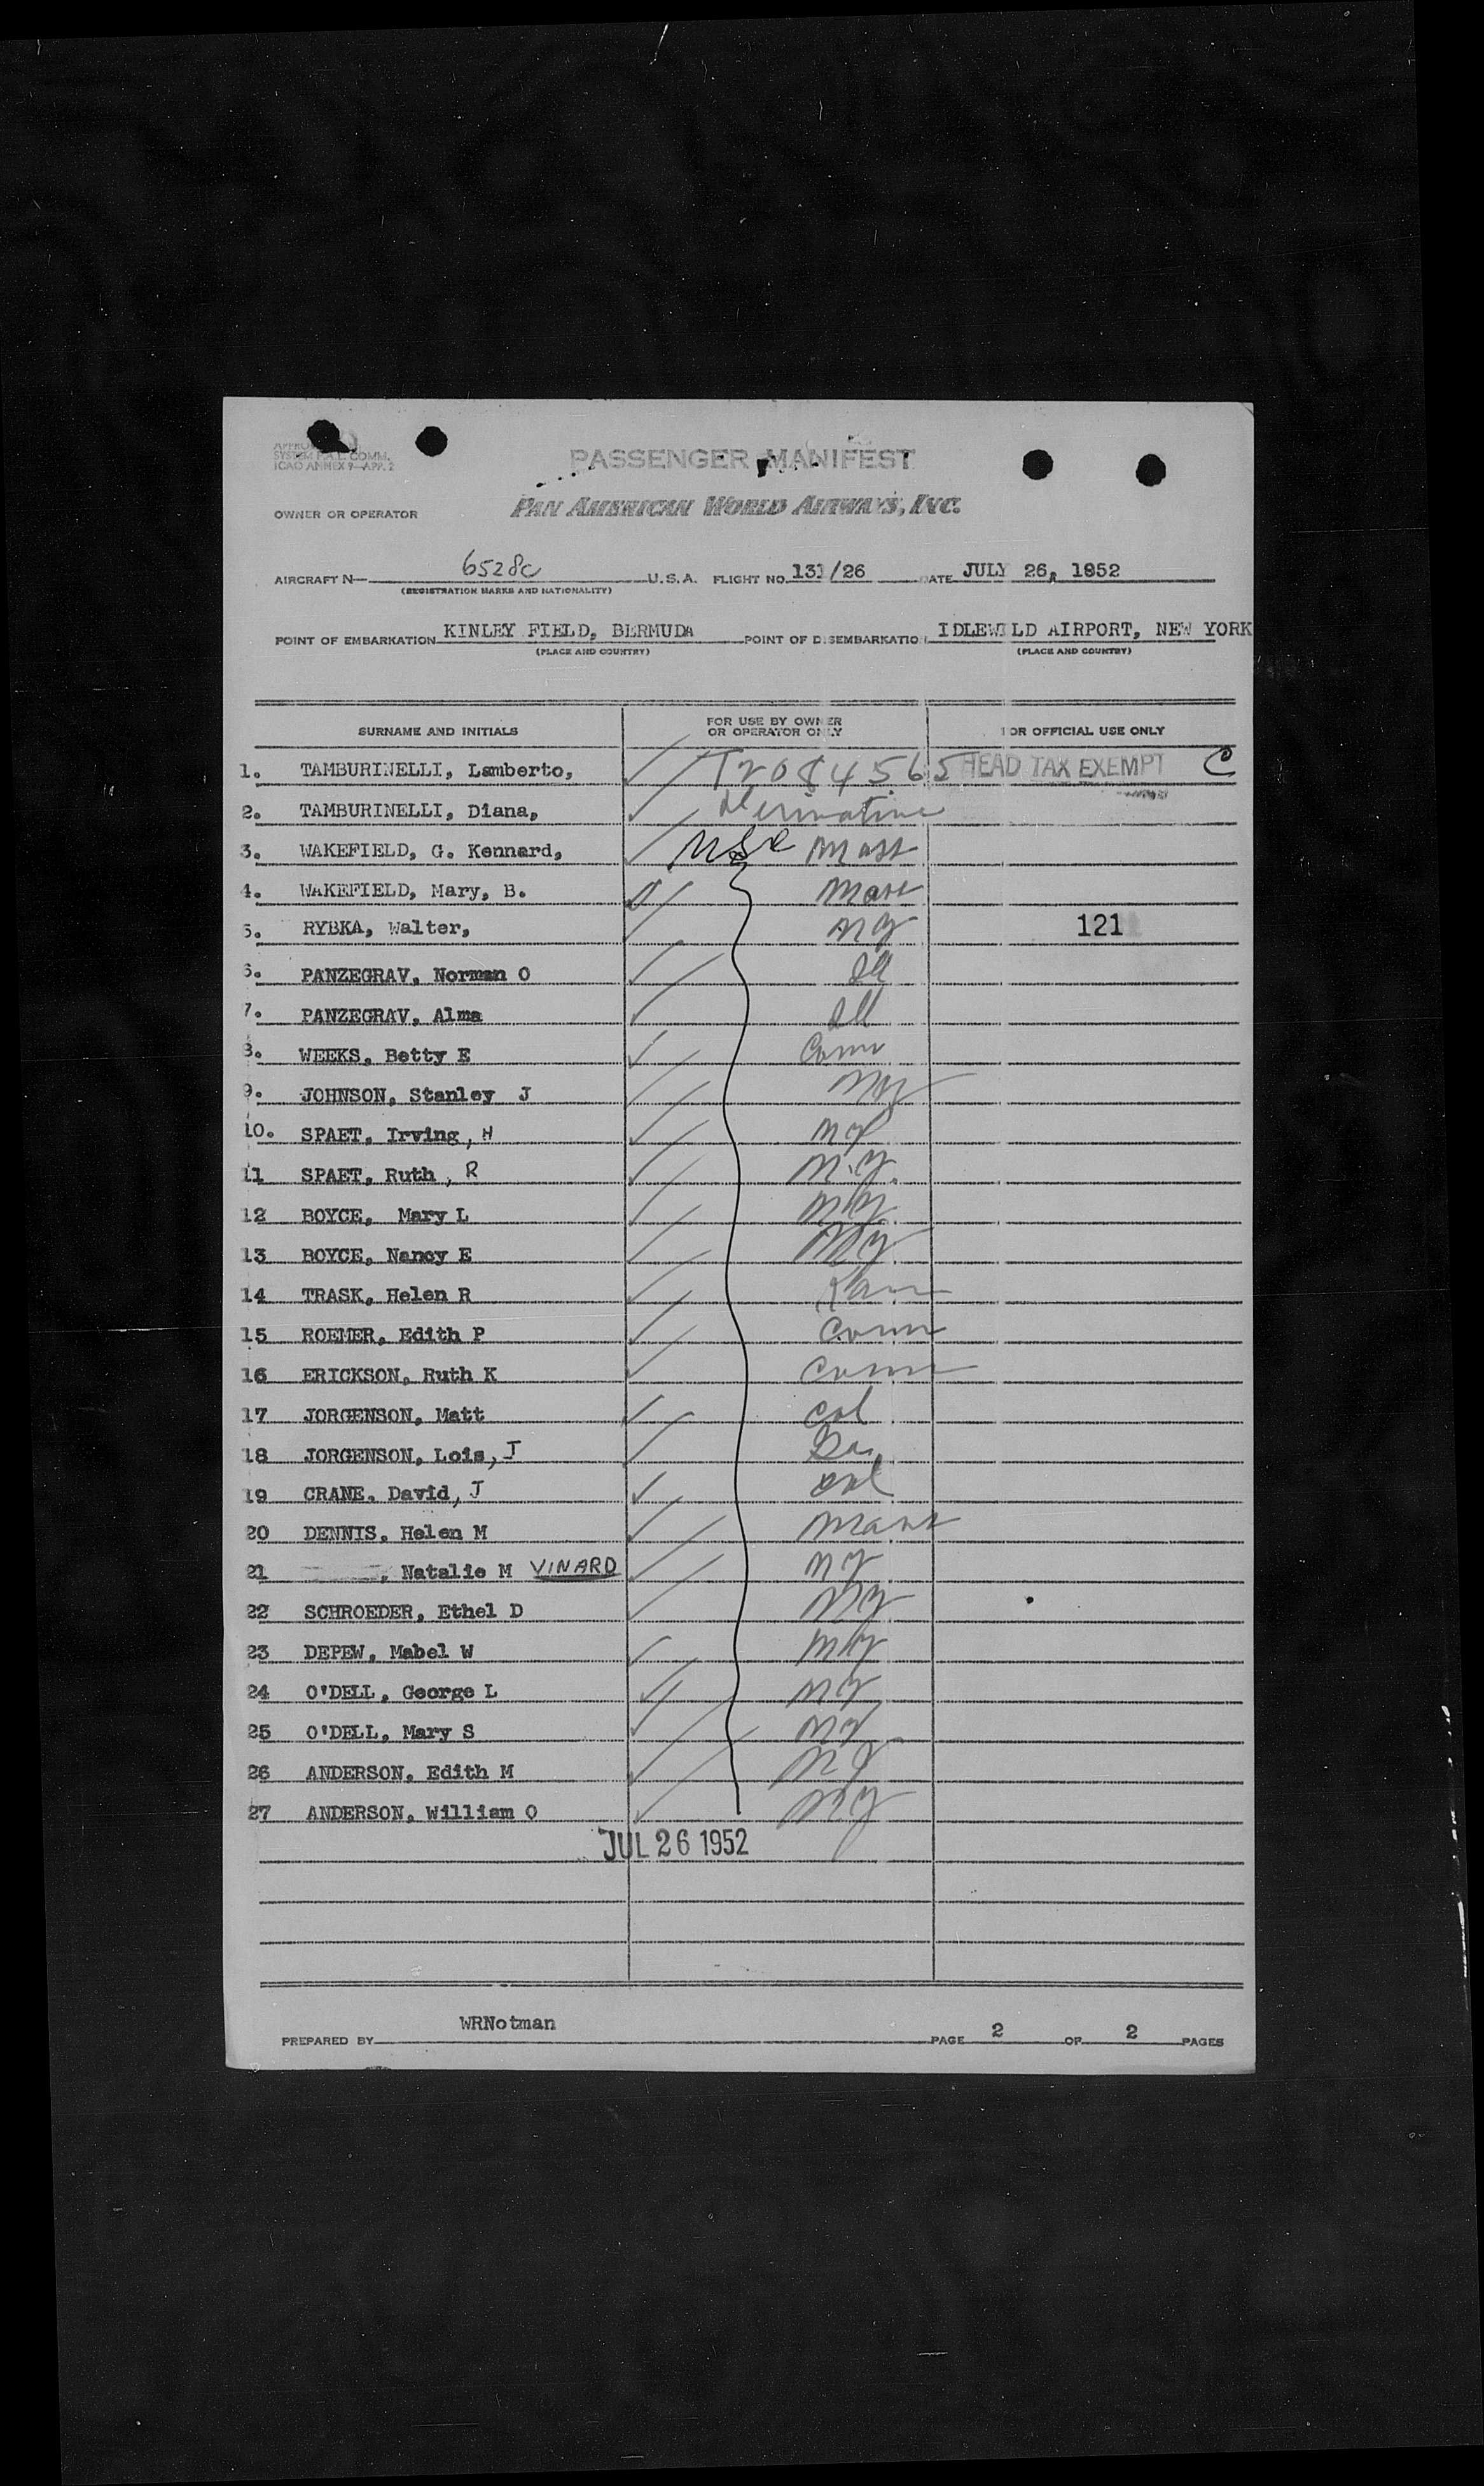 SYSTEM F.A.L. COMM.
ICAO ANNEX 9—APP. 2
PASSENGER MANIFEST
OWNER OR OPERATOR PAN AMERICAN WORLD AIRWAYS, INC.
AIRCRAFT N— 6528C U.S.A. FLIGHT NO. 131/26 DATE JULY 26, 1952
(REGISTRATION MARKS AND NATIONALITY)
POINT OF EMBARKATION KINLEY FIELD, BERMUDA POINT OF DISEMBARKATION IDLEWILD AIRPORT, NEW YORK
(PLACE AND COUNTRY) (PLACE AND COUNTRY)
SURNAME AND INITIALS FOR USE BY OWNER OR OPERATOR ONLY FOR OFFICIAL USE ONLY
1. TAMBURINELLI, Lamberto, T2084565 HEAD TAX EXEMPT C
2. TAMBURINELLI, Diana, Derivative
3. WAKEFIELD, G. Kennard, Mass
4. WAKEFIELD, Mary, B. Mass
5. RYBKA, Walter, NY 121
6. PANZEGRAV, Norman O Ill
7. PANZEGRAV, Alma Ill
8. WEEKS, Betty E Conn
9. JOHNSON, Stanley J NY
10. SPAET, Irving, H NY
11 SPAET, Ruth, R N.Y.
12 BOYCE, Mary L NY
13 BOYCE, Nancy E NY
14 TRASK, Helen R
15 ROEMER, Edith P Conn
16 ERICKSON, Ruth K Conn
17 JORGENSON, Matt Cal
18 JORGENSON, Lois, J
19 CRANE, David, J Cal
20 DENNIS, Helen M Mass
21 , Natalie M VINARD NY
22 SCHROEDER, Ethel D NY
23 DEPEW, Mabel W NY
24 O'DELL, George L NY
25 O'DELL, Mary S NY
26 ANDERSON, Edith M NY
27 ANDERSON, William O NY
JUL 26 1952
PREPARED BY WRNotman PAGE 2 OF 2 PAGES